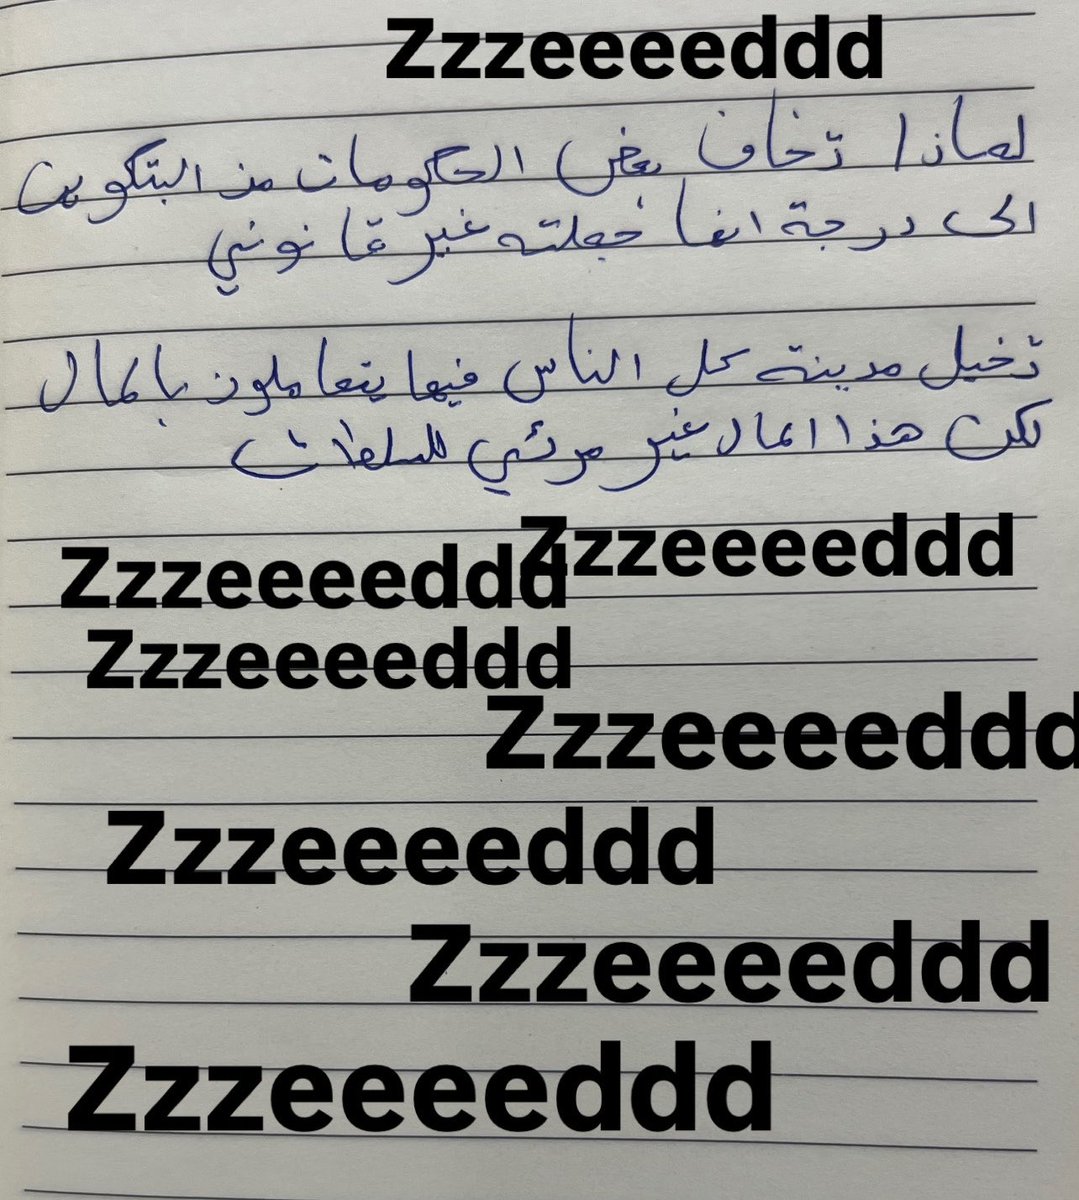 Zzzeeeeddd
لماذا تخاف بعض الحكومات من البتكوين
الى درجة انها جعلته غير قانوني
تخيل مدينة كل الناس فيها يتعاملون بالمال
لكن هذا المال غير مرئي للسلطات
Zzzeeeeddd
Zzzeeeeddd
Zzzeeeeddd
Zzzeeeeddd
Zzzeeeeddd
Zzzeeeeddd
Zzzeeeeddd